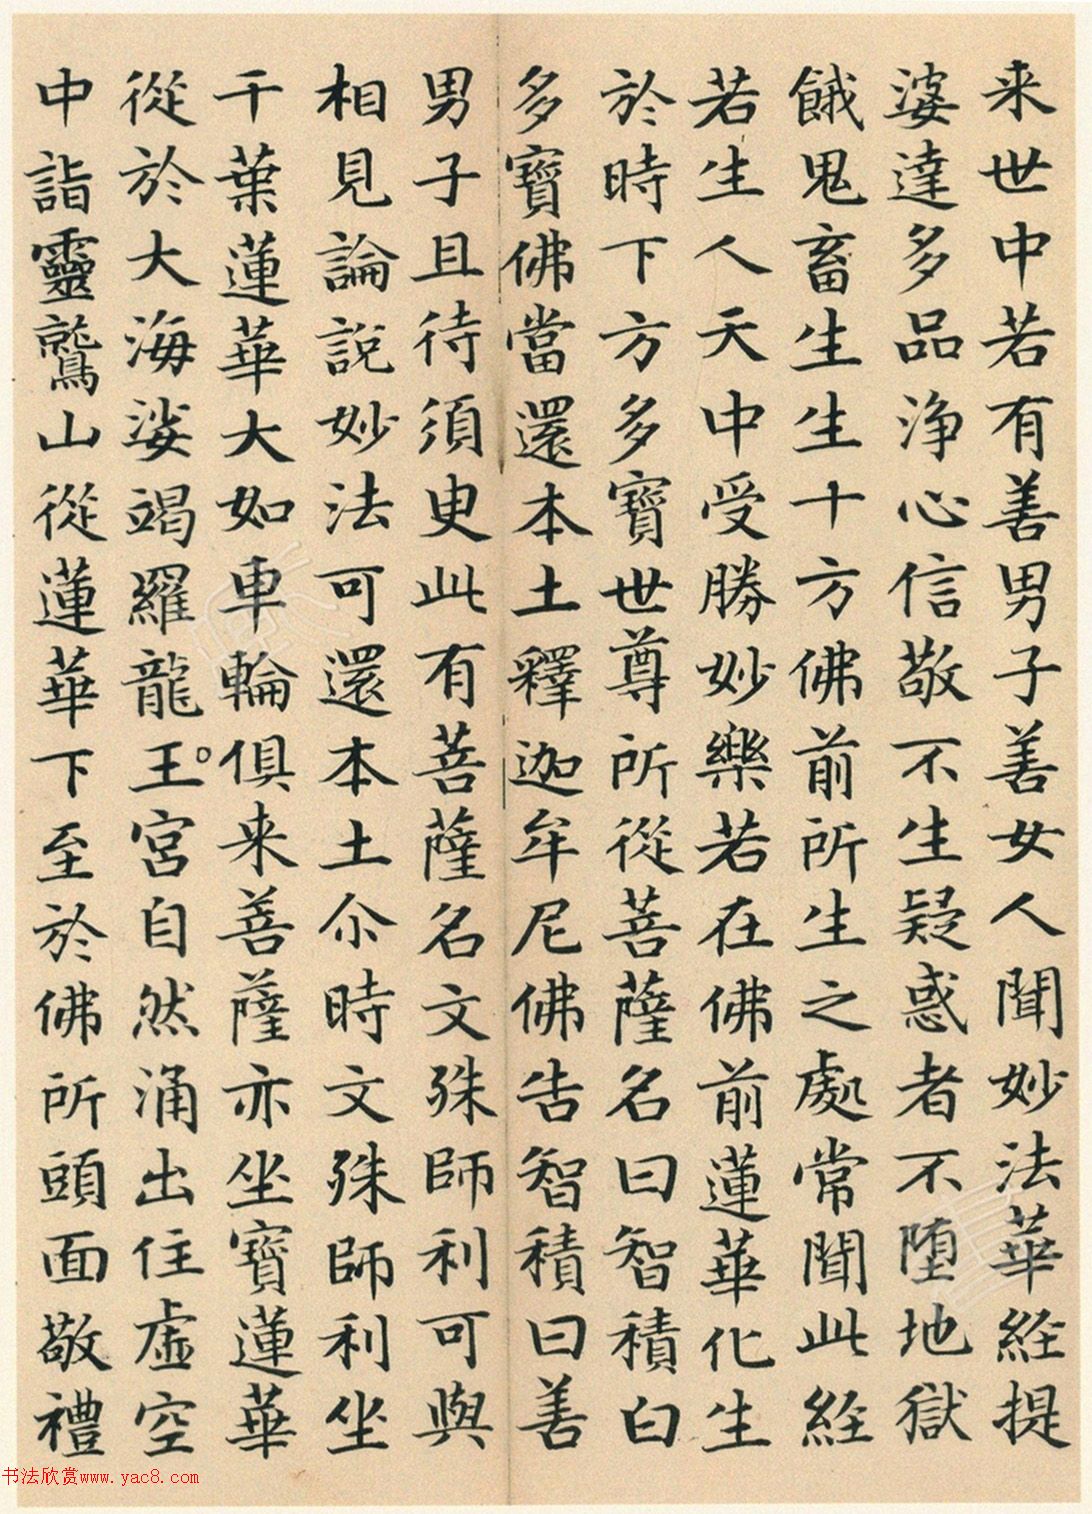 来世中若有善男子善女人聞妙法華経提
婆達多品浄心信敬不生疑惑者不堕地獄
餓鬼畜生生十方佛前所生之處常聞此経
若生人天中受勝妙樂若在佛前蓮華化生
於時下方多寶世尊所從菩薩名曰智積白
多寶佛當還本土釋迦牟尼佛告智積曰善
男子且待須臾此有菩薩名文殊師利可與
相見論說妙法可還本土尒時文殊師利坐
千葉蓮華大如車輪俱来菩薩亦坐寶蓮華
從於大海娑竭羅龍王宮自然涌出住虛空
中詣靈鷲山從蓮華下至於佛所頭面敬禮
书法欣赏www.yac8.com